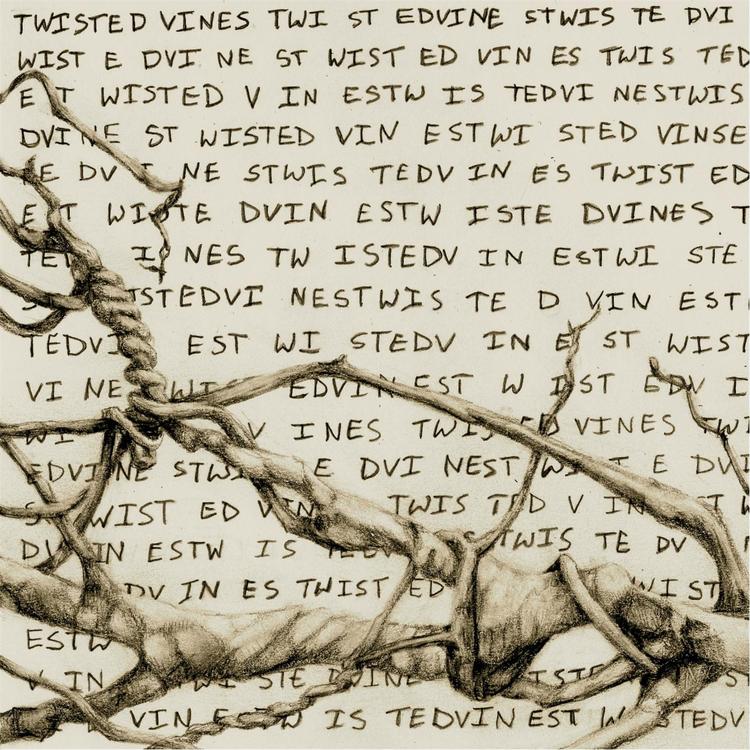 TWISTED VINES TWI ST EDVINE STWIS TE DVI
WIST E DVI NE ST WIST ED VIN ES TWIS TED
E T WISTED V IN ESTW IS TEDVI NESTWIS
DVINE ST WISTED VIN ESTWI STED VINSE
TE DV I NE STWIS TEDV IN ES TWIST ED
E T WISTE DVIN ESTW ISTE DVINES T
TE I NES TW ISTEDV IN ESTWI STE
S TSTEDVI NESTWIS TE D VIN EST
TEDVI EST WI STEDV IN E ST WIST
VI NE WIS EDVIN EST W IST EDV I
WI V INES TWIS ED VINES TWI
EDVINE STWIS E DVI NEST WIST E DVI
S WIST ED VIN TWIS TED V IN ST W
DV IN ESTW IS TEDV STWIS TE DV
DV IN ES TWIST ED WI ST
ESTW
V IN TWI STE DVINE ISTE
VIN ESTW IS TEDVIN EST W STEDV